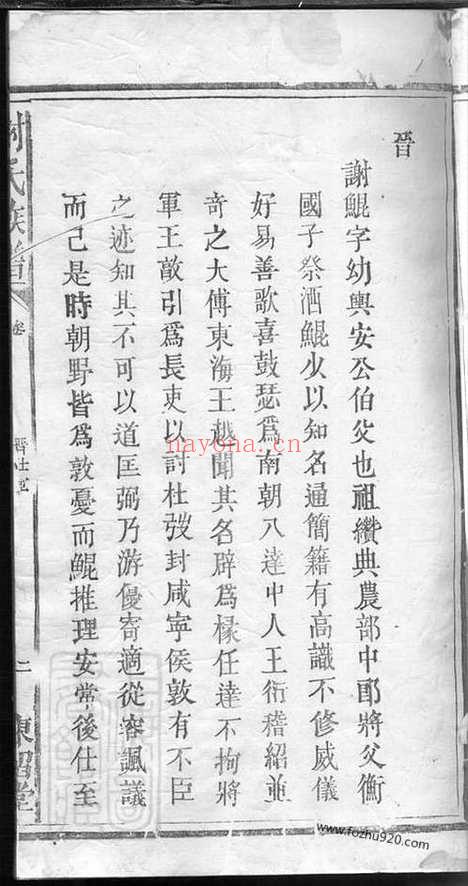 晉
謝鯤字幼輿安公伯父也祖纘典農部中郎將父衡
國子祭酒鯤少以知名通簡籍有高識不修威儀
好易善歌喜鼓瑟爲南朝八達中人王衍嵇紹並
奇之大傅東海王越聞其名辟爲掾任達不拘將
軍王敦引爲長吏以討杜弢封咸寧侯敦有不臣
之迹知其不可以道匡弼乃游優寄適從容諷議
而已是時朝野皆爲敦憂而鯤推理安常後仕至
謝氏族譜
卷
晋仕宦
二
東
堂
nayona.cn
www.fozhu920.com